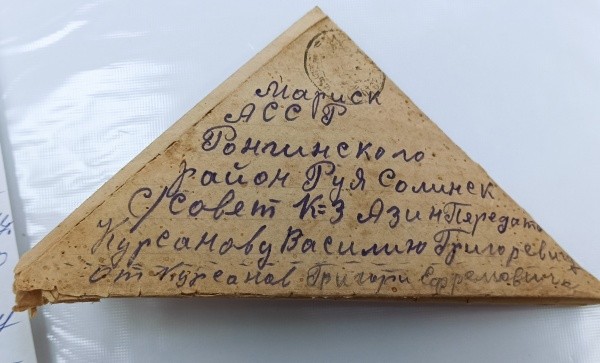 Мариск
АССР
Ронгинского
район Руя Солинск
С/совет К=З Азин Передать
Курсанову Василию Григоревичу
От Курсанов Григори Ефремовича